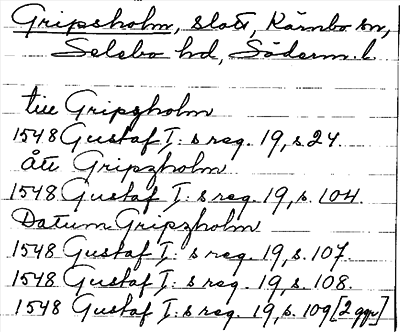 Gripsholm, slott, Kärnbo sn,
Selebo hd, Söderm. l.
till Gripzholm
1548 Gustaf I:s reg. 19, s. 24.
ått Gripzholm
1548 Gustaf I:s reg. 19, s. 104.
Datum Gripzholm
1548 Gustaf I:s reg. 19, s. 107.
1548 Gustaf I:s reg. 19, s. 108.
1548 Gustaf I:s reg. 19, s. 109 [2 ggr]